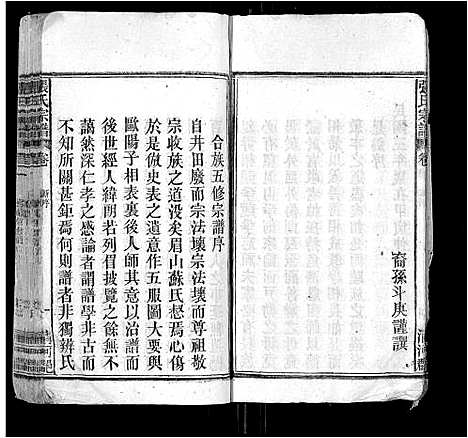 張氏宗譜
卷
裔孫斗庚謹譔
清河郡
合族五修宗譜序
自井田廢而宗法壞宗法壞而尊祖敬
宗收族之道没矣眉山蘇氏惄焉心傷
於是做史表之遺意作五服圖大要與
歐陽子相表裏後人師其意以治譜而
後世經人緯閒若列眉披覽之餘無不
藹然深仁孝之感論者謂譜學非古而
不知所關甚鉅焉何則譜者非獨辨氏
張氏宗譜
卷一
新序
清河郡